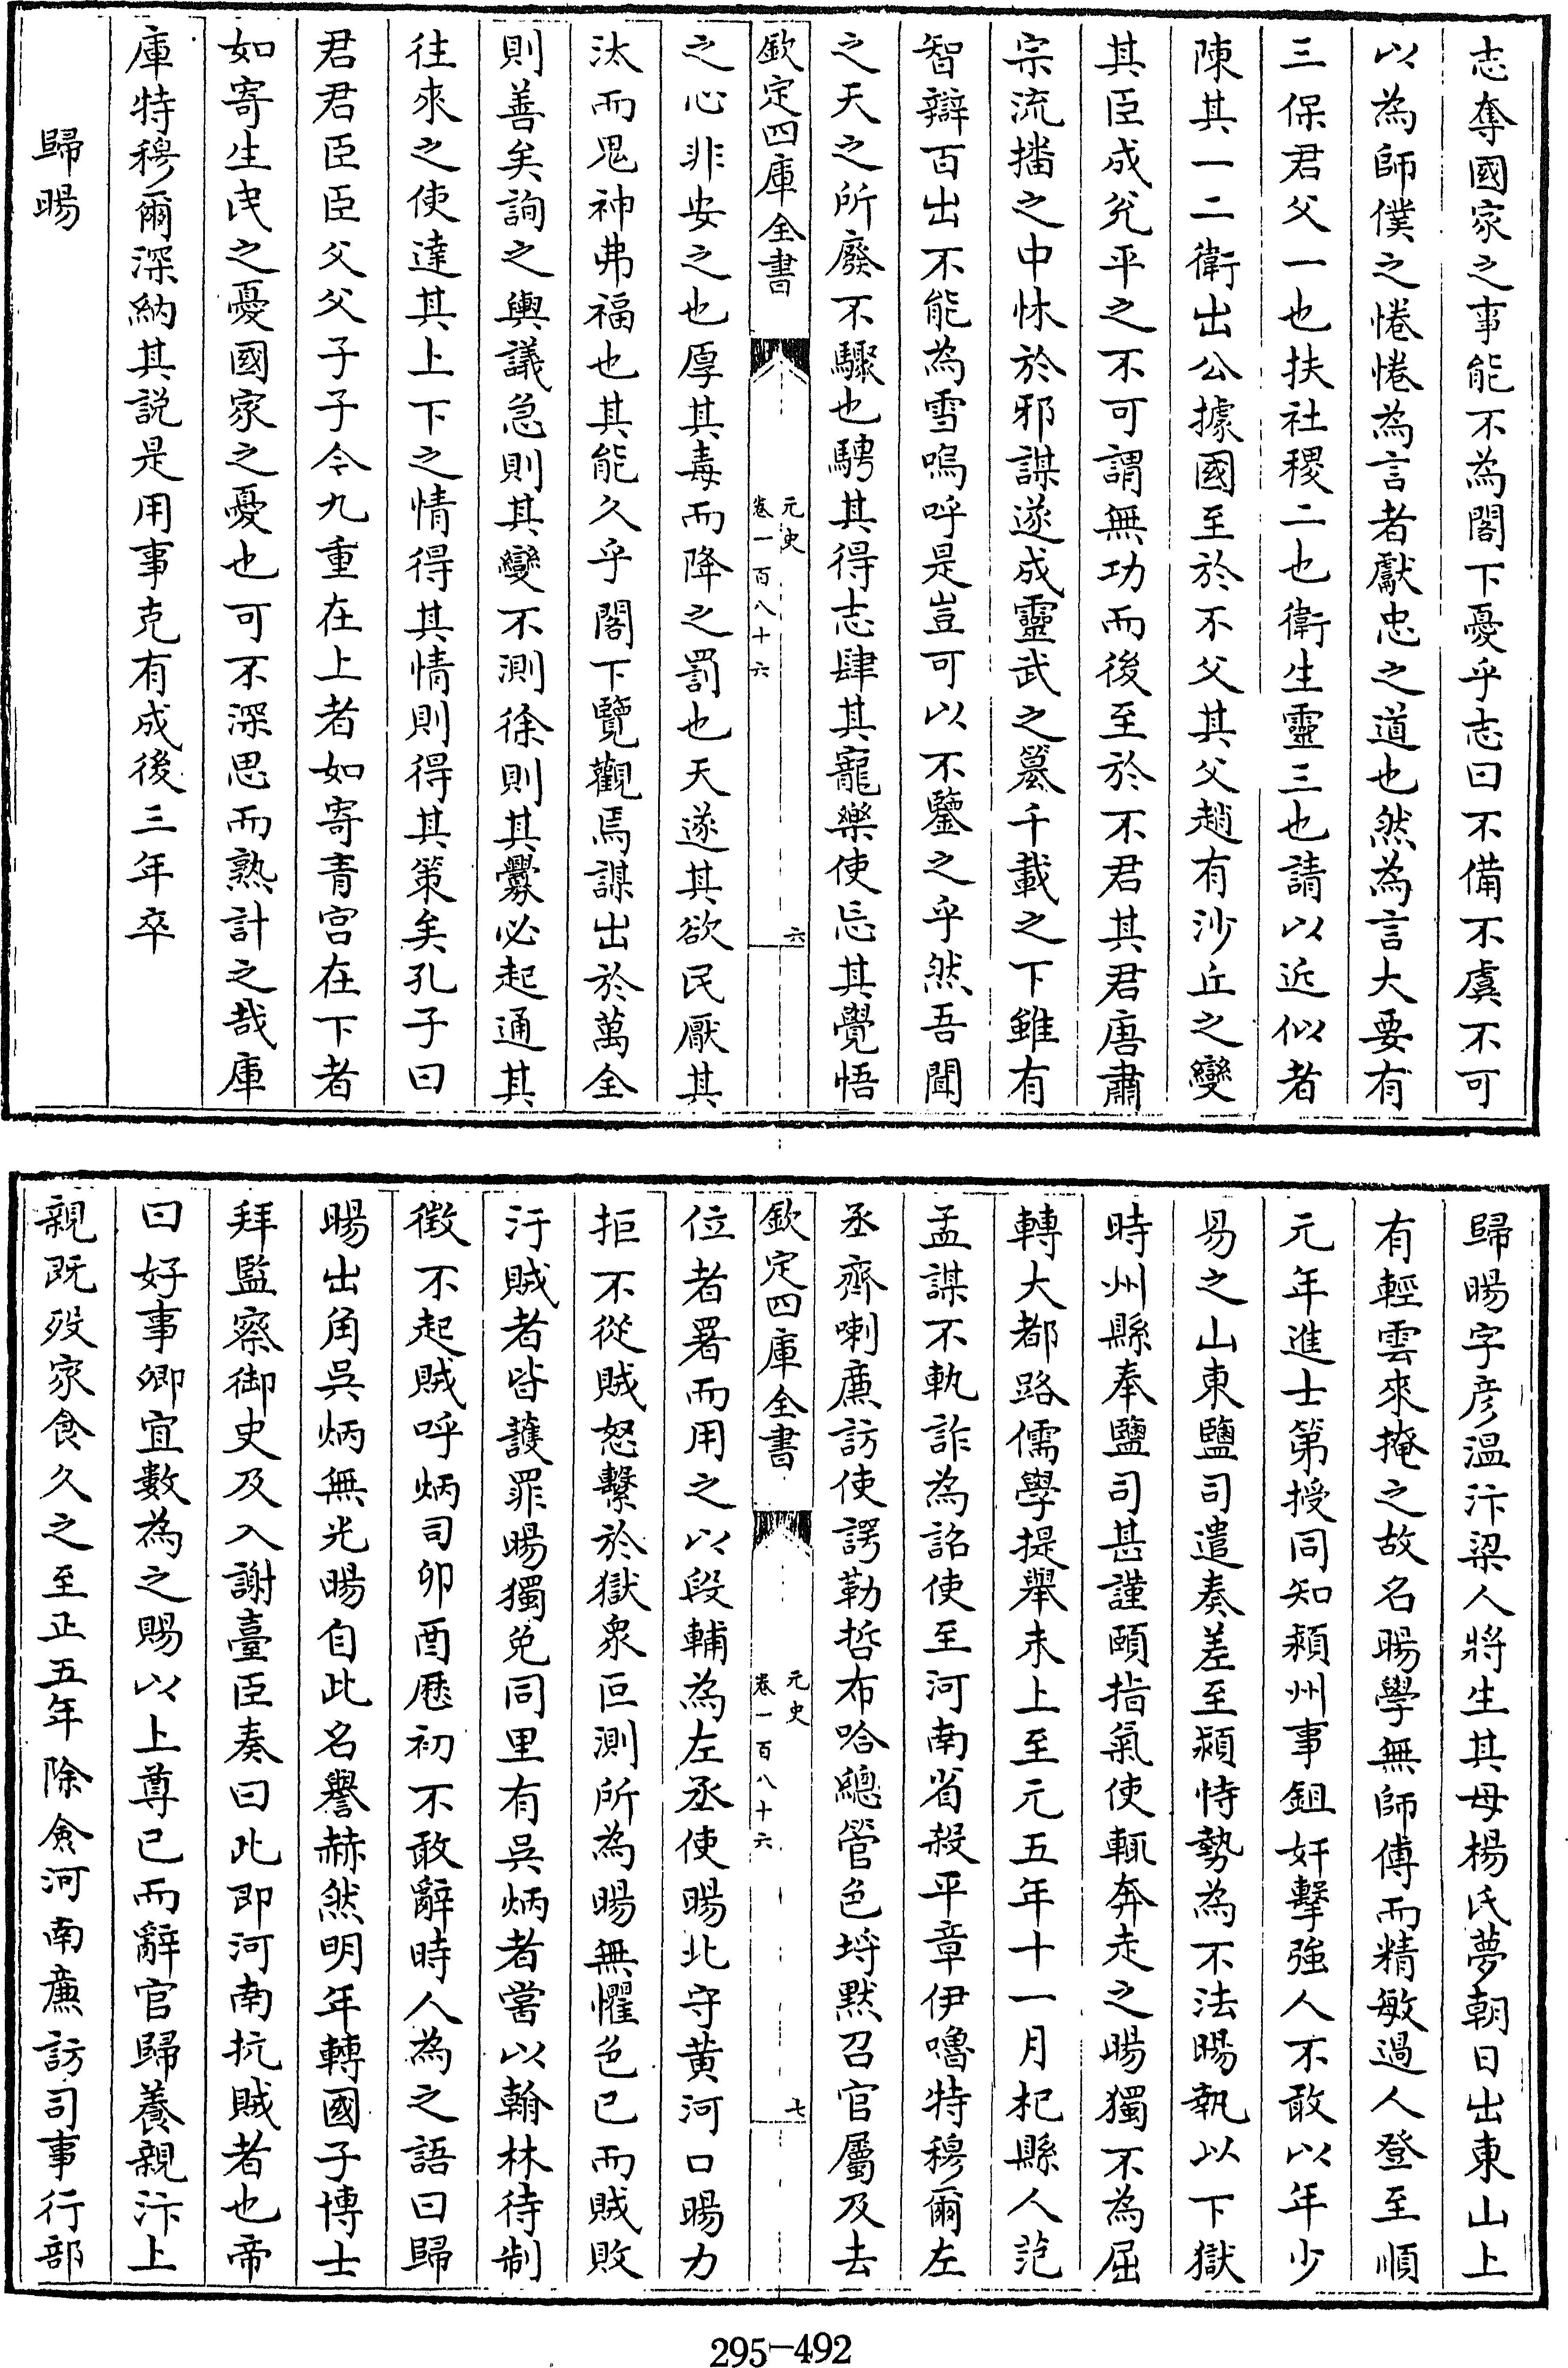 志奪國家之事能不為閣下憂乎志曰不備不虞不可
以為師僕之惓惓為言者獻忠之道也然為言大要有
三保君父一也扶社稷二也衛生靈三也請以近似者
陳其一二衛出公據國至於不父其父趙有沙丘之變
其臣成兊平之不可謂無功而後至於不君其君唐肅
宗流播之中怵於邪謀遂成靈武之簒千載之下雖有
智辯百出不能為雪嗚呼是豈可以不鑒之乎然吾聞
之天之所廢不驟也騁其得志肆其寵樂使忘其覺悟
欽定四庫全書
元史
卷一百八十六
六
之心非安之也厚其毒而降之罰也天遂其欲民厭其
汰而鬼神弗福也其能久乎閣下覽觀焉謀出於萬全
則善矣詢之輿議急則其變不測徐則其釁必起通其
往來之使達其上下之情得其情則得其策矣孔子曰
君君臣臣父父子子今九重在上者如寄青宫在下者
如寄生民之憂國家之憂也可不深思而熟計之哉庫
庫特穆爾深納其説是用事克有成後三年卒
歸暘
歸暘字彦温汴梁人將生其母楊氏夢朝日出東山上
有輕雲來掩之故名暘學無師傅而精敏過人登至順
元年進士第授同知潁州事鉏奸擊強人不敢以年少
易之山東鹽司遣奏差至潁恃勢為不法暘執以下獄
時州縣奉鹽司甚謹頤指氣使輒奔走之暘獨不為屈
轉大都路儒學提舉未上至元五年十一月杞縣人范
孟謀不軌詐為詔使至河南省殺平章伊嚕特穆爾左
丞齊喇廉訪使諤勒哲布哈總管色埒默召官屬及去
欽定四庫全書
元史
卷一百八十六
七
位者署而用之以段輔為左丞使暘北守黄河口暘力
拒不從賊怒繫於獄衆叵測所為暘無懼色已而賊敗
汙賊者皆獲罪暘獨免同里有吳炳者嘗以翰林待制
徴不起賊呼炳司卯酉厯初不敢辭時人為之語曰歸
暘出角吳炳無光暘自此名譽赫然明年轉國子博士
拜監察御史及入謝臺臣奏曰此即河南抗賊者也帝
曰好事卿宜數為之賜以上尊已而辭官歸養親汴上
親既歿家食久之至正五年除僉河南廉訪司事行部
295-492